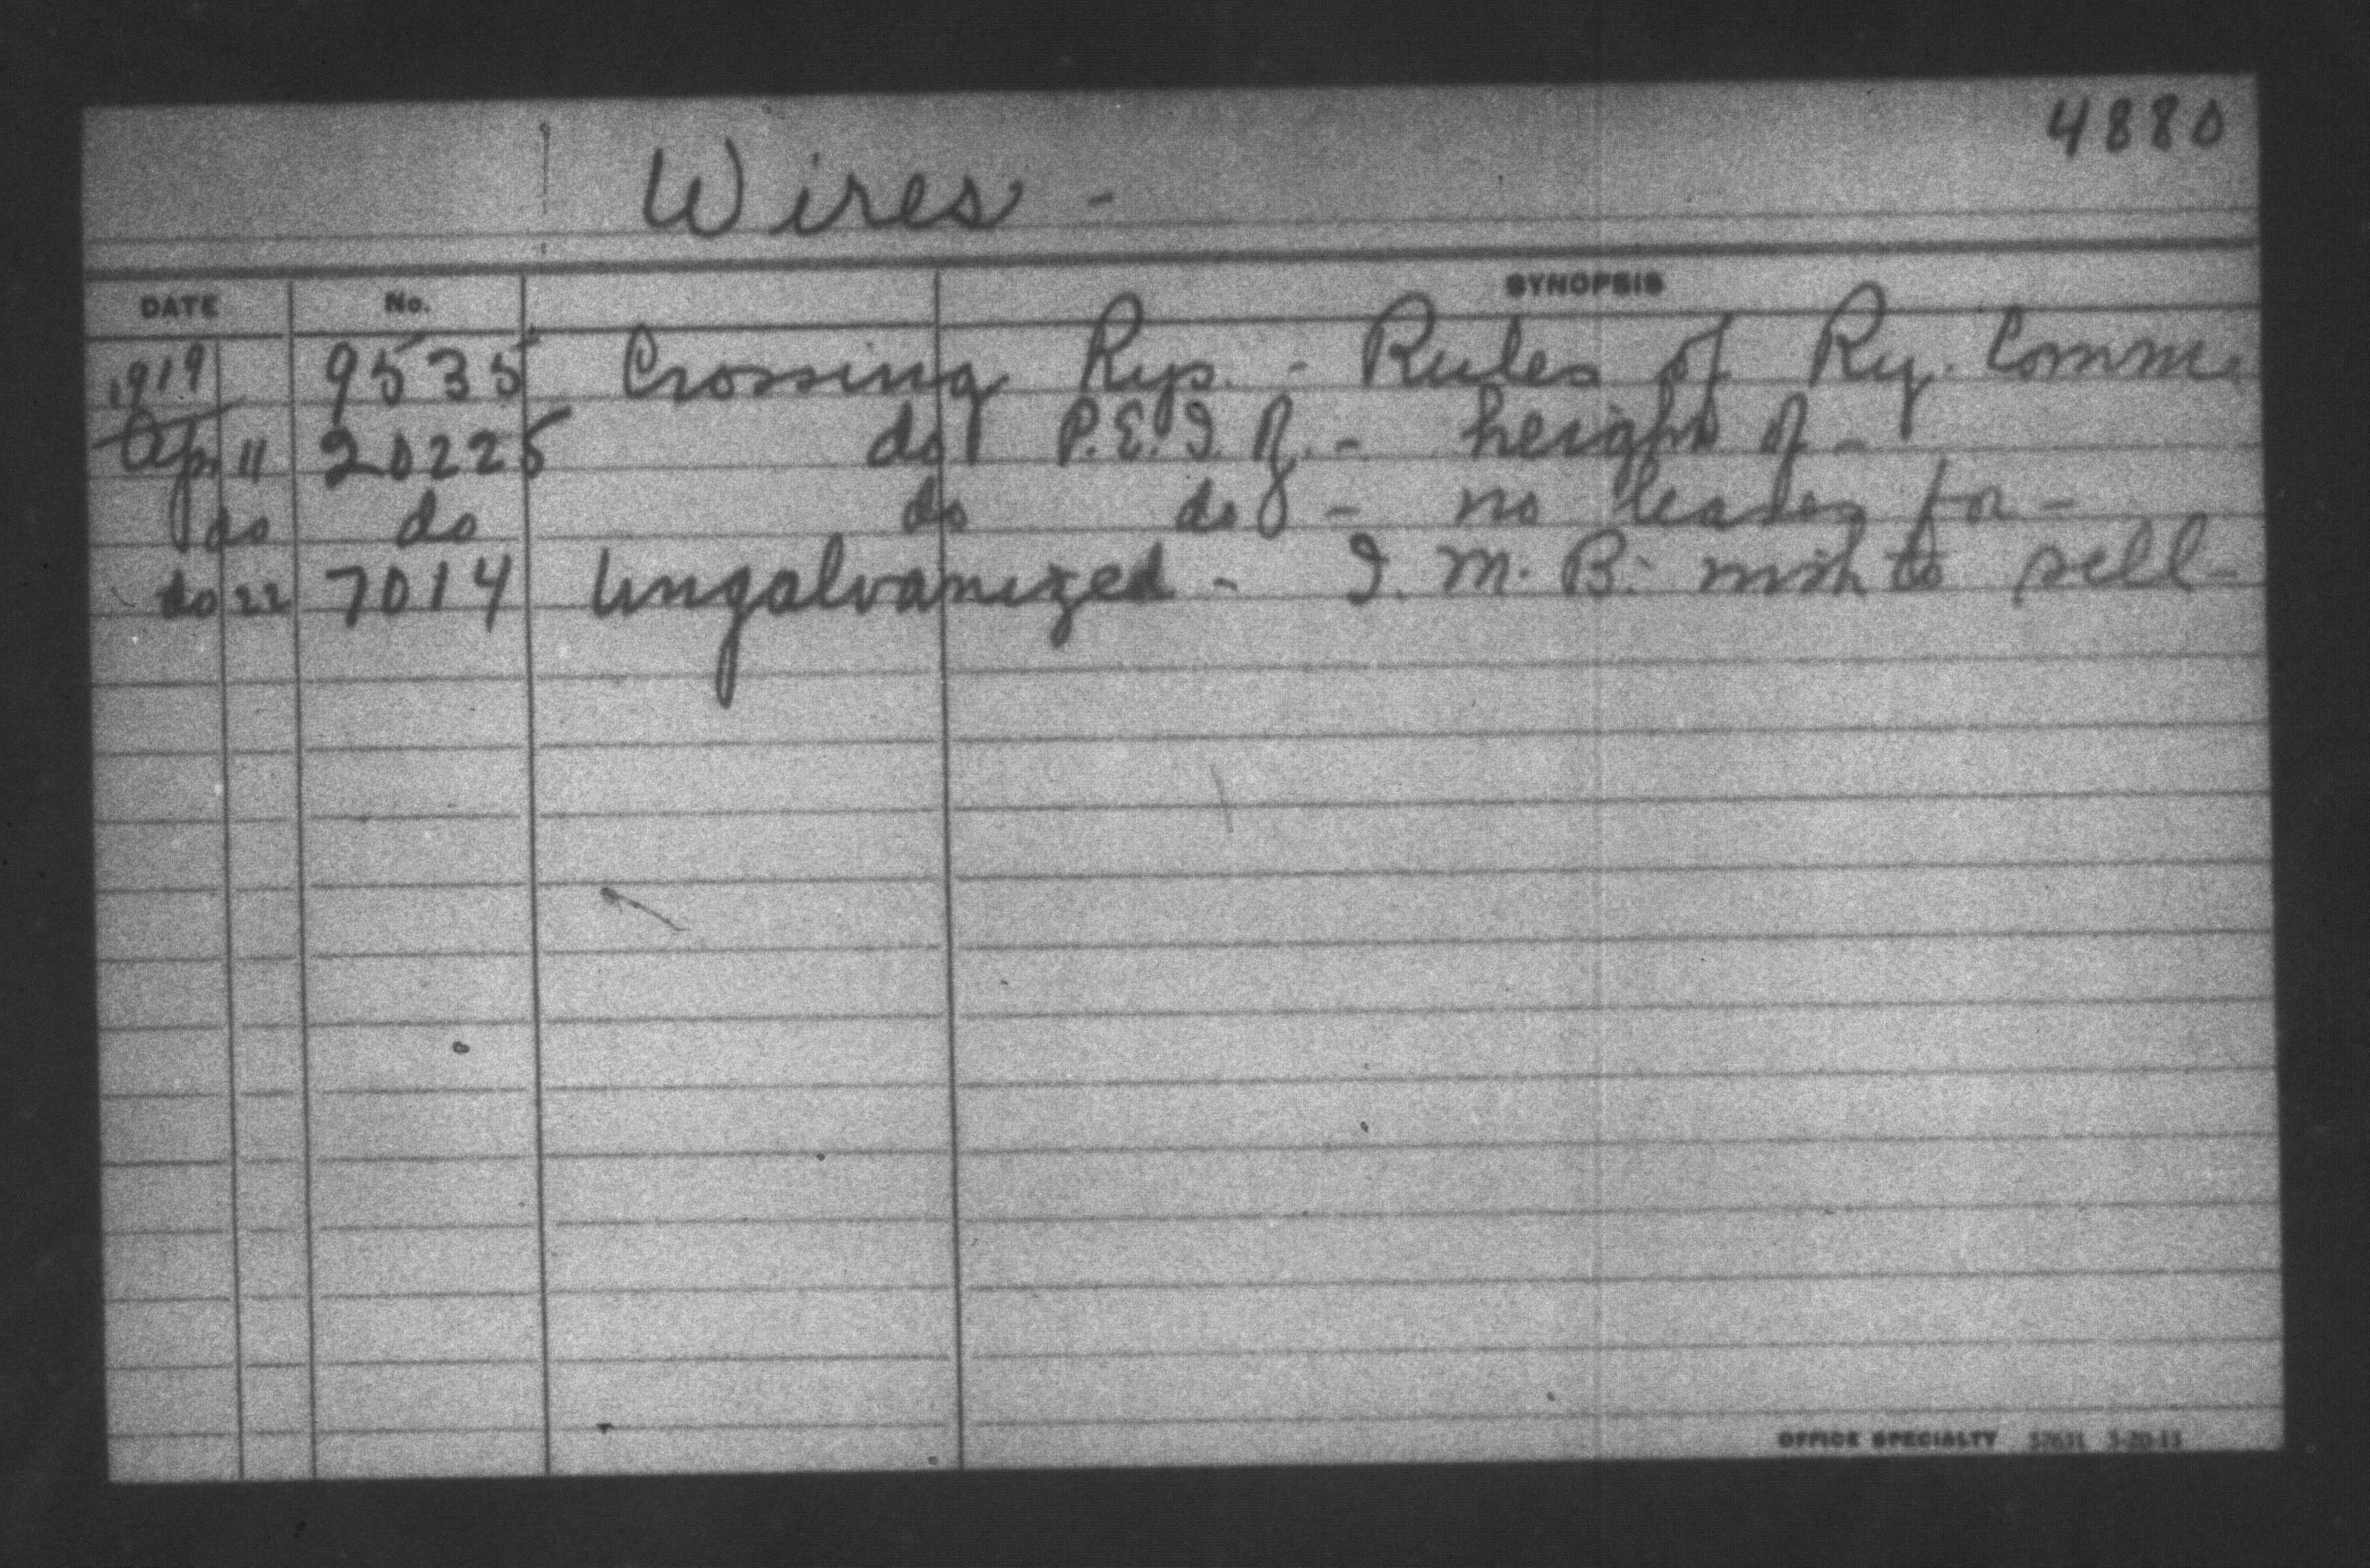 4880
Wires -
DATE No. SYNOPSIS
1919 9535 Crossing Rys. - Rules of Ry. Comm.
Apr 11 20225 do P.E.I. Ry. - height of -
do do do do - no leases for -
do 22 7014 Ungalvanized - I. M. B. wish to sell -
OFFICE SPECIALTY 3-20-13